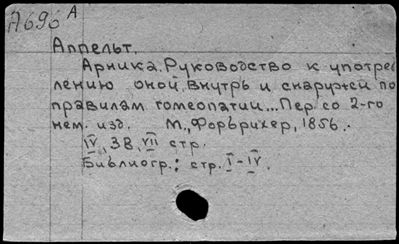 А696 А
Аппельт.
Арника. Руководство к употреб
лению оной внутрь и снаружи по
правилам гомеопатии... Пер. со 2-го
нем. изд. М., Форбрихер, 1856.
IV, 38, VII стр.
Библиогр.: стр. I-IV.